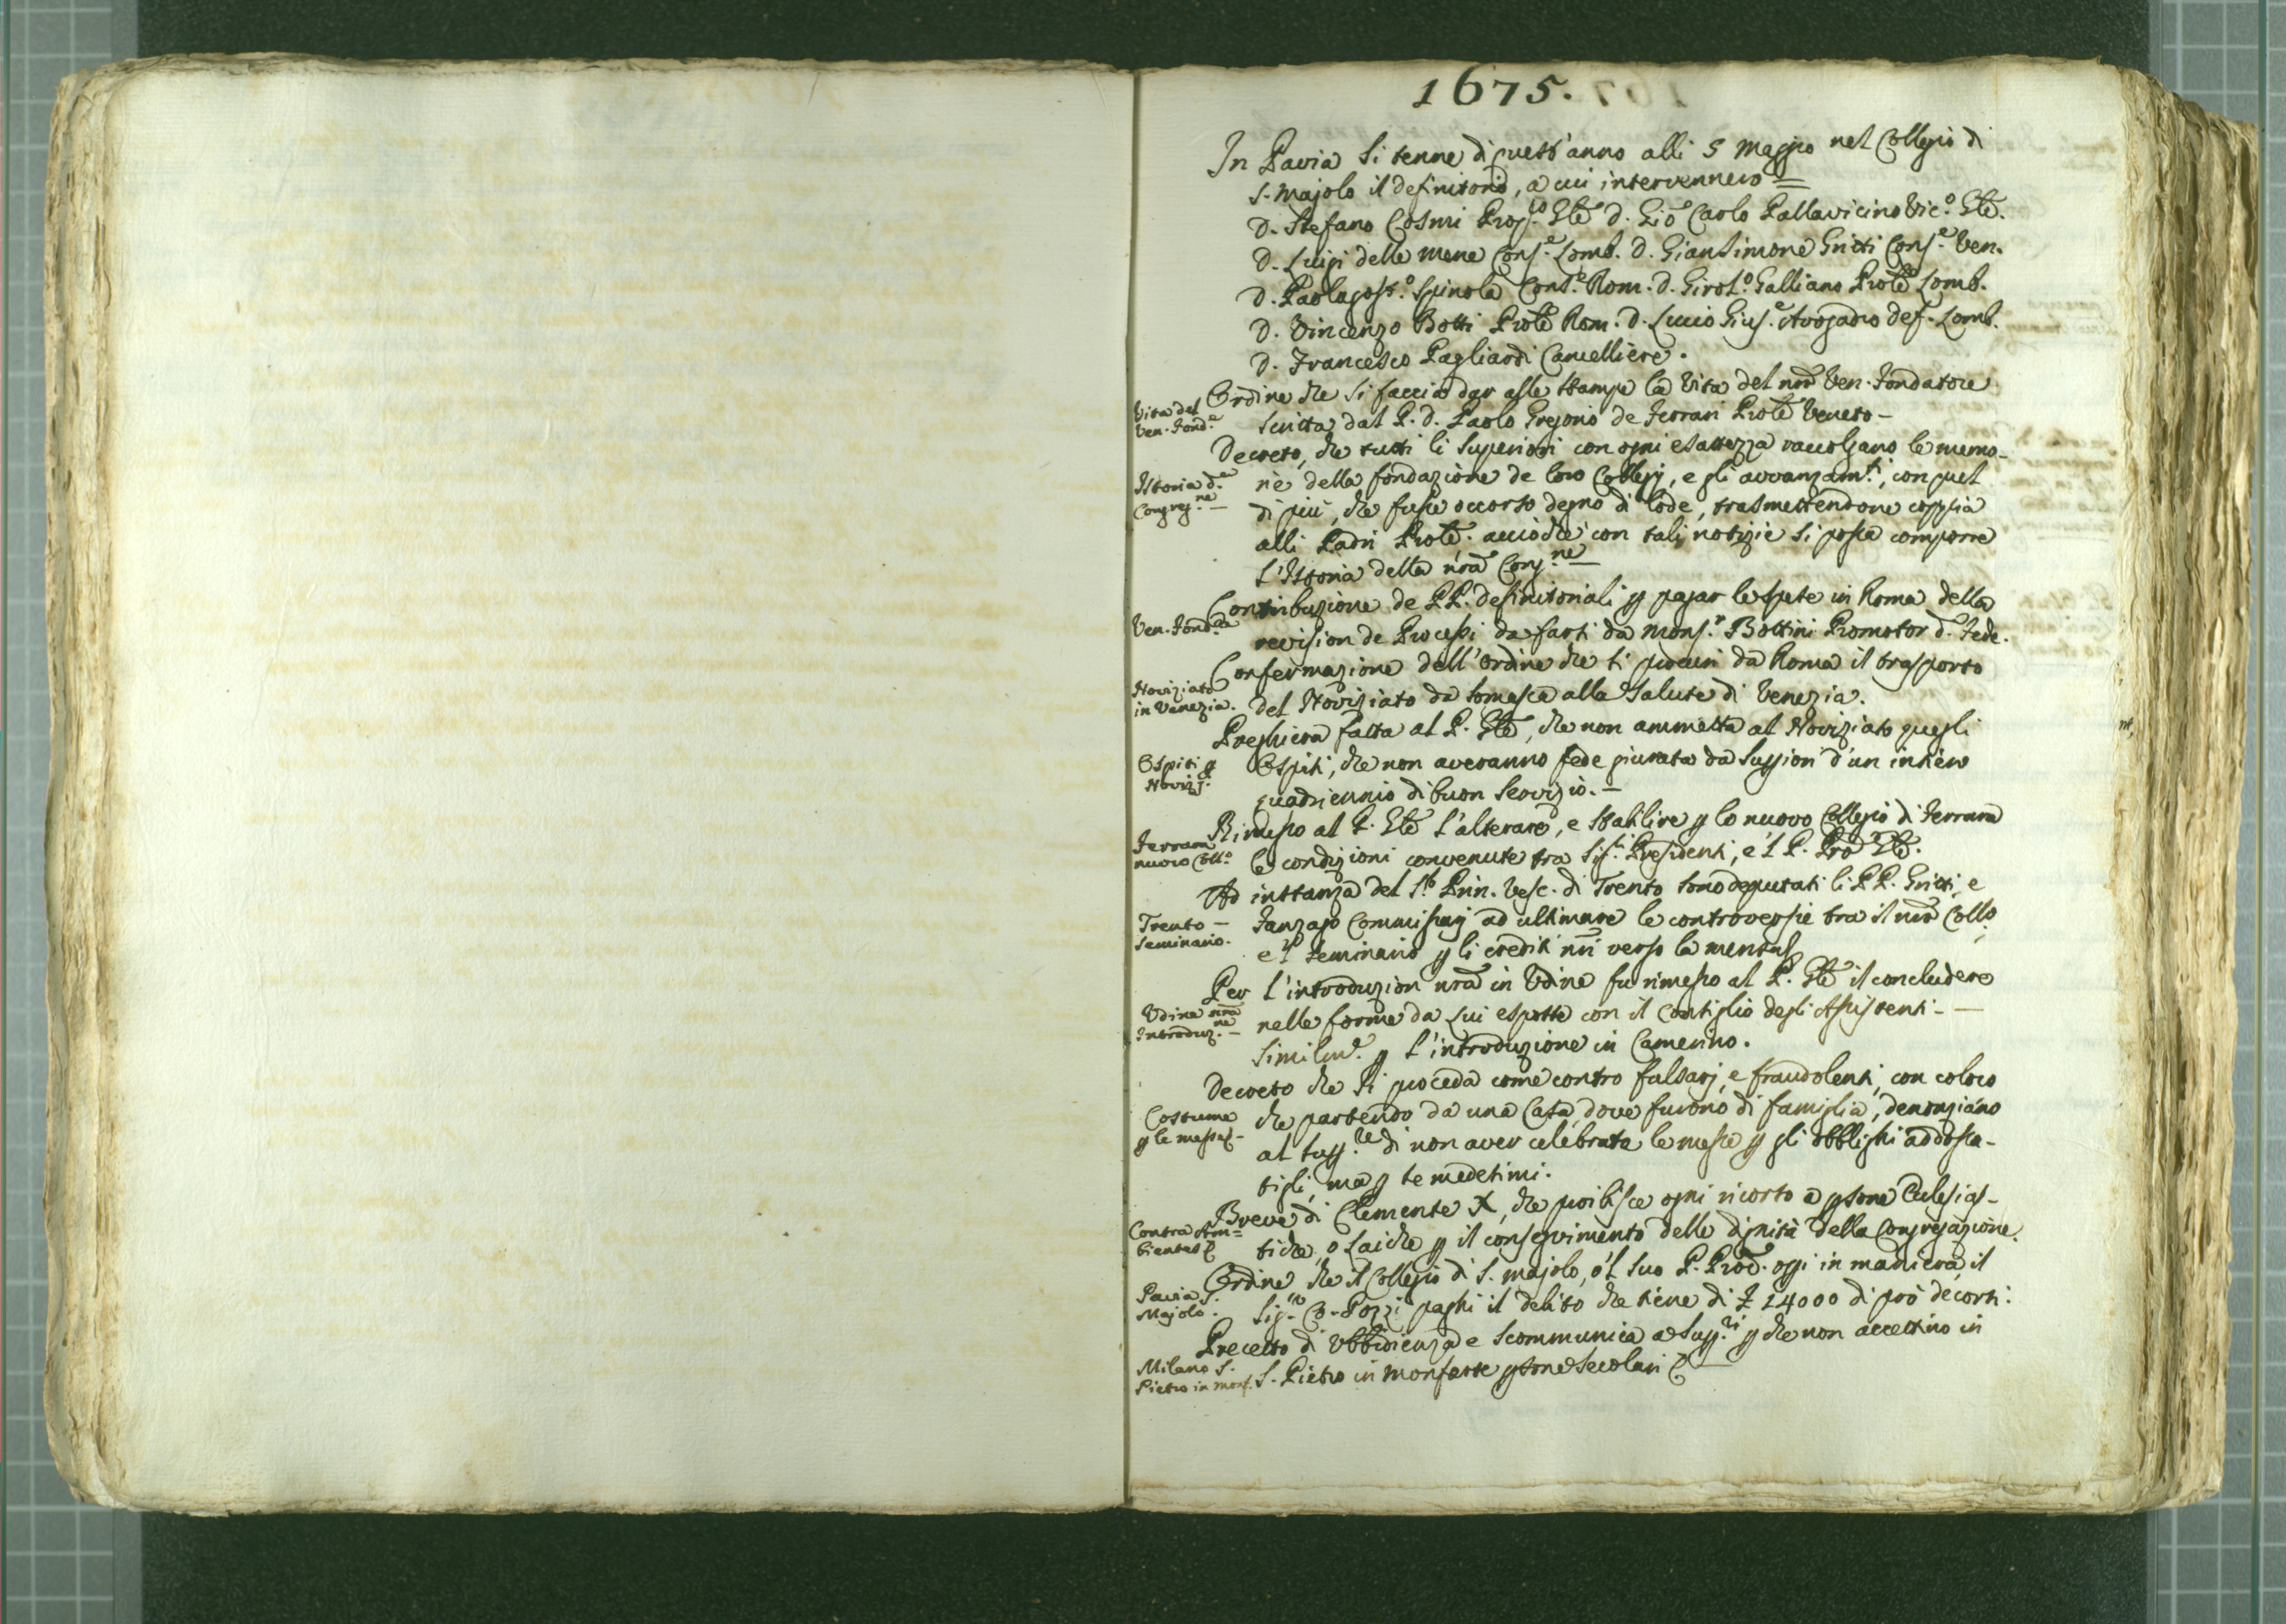 1675.
In Pavia si tenne di quest'anno alli 5 Maggio nel Collegio di
S. Majolo il definitorio, a cui intervennero =
D. Stefano Cosmi Prop.to Gñle D. Giõ Carlo Pallavicino Vic.o Gñle.
D. Luigi delle Mene Cons.e Lomb. D. Giansimone Gritti Cons.e Ven.
D. Paolagost.o Spinola Cons.e Rom. D. Girol.o Galliano Prõle Lomb.
D. Vincenzo Botti Prõle Rom. D. Lucio Gius.e Avogadro def. Lomb.
D. Francesco Pagliardi Cancelliere.
Vita del
Ven. Fond.e
Ordine che si faccia dar alle stampe la Vita del nrõ Ven. Fondatore
scritta dal P. D. Paolo Gregorio de Ferrari Prõle Veneto -
Istoria d.a
Congreg.ne -
Decreto, che tutti li Superiori con ogni esattezza raccolgano le memo-
rie della fondazione de loro Collegj, e gli avanzam.ti, con quel
di più, che fusse occorso degno di lode, trasmettendone coppia
alli Padri Prõle. acciochè con tali notizie si possa comporre
l'Istoria della nrã Cong.ne -
Ven. Fond.re
Contribuzione de PP. definitoriali p pagar le spese in Roma della
revision de Processi da farsi da Mons.r Bottini Promotor d. Fede.
Noviziato
in Venezia.
Confermazione dell'ordine che si procuri da Roma il trasporto
del Noviziato da Somasca alla Salute di Venezia.
Ospiti p
Novizj.
Preghiera fatta al P. Gñle, che non ammetta al Noviziato quegli
Ospiti, che non averanno fede giurata da Suppiori d'un intiero
quadriennio di buon servizio. -
Ferrara
nuovo Coll.o
Rimesso al P. Gñle l'alterare, e stabilire p lo nuovo Collegio di Ferrara
le condizioni convenute tra Sig.ri Presidenti, e'l P. Prõ Gñle.
Trento -
Seminario.
Ad instanza del S.r Prin. Vesc. di Trento sono deputati li PP. Gritti, e
Fanzago Commissarj ad ultimare le controversie tra il nrõ Collo.
e'l Seminario p li crediti nrĩ verso la mensa
Udine nrã
Introduz.ne -
Per l'introduzion nrã in Udine fu rimesso al P. Gñle il concludere
nelle forme da lui esposte con il Consiglio degli Assistenti - -
Similm.e p l'introduzione in Camerino.
Costume
p le messe -
Decreto che si proceda come contro falsarj, e fraudolenti, con coloro
che partendo da una Casa, dove furono di famiglia, denonziano
al Supp.re di non aver celebrata le messe p gli obblighi addossa-
tigli, ma p se medesimi.
Contra Am=
bientes
Breve di Clemente X, che proibisce ogni ricorso a psone Eclesias-
tiche, o Laiche p il conseguimento delle dignità della Congregazione.
Pavia S.
Majolo.
Ordine che il Collegio di S. Majolo, o'l suo P. Procẽ. oggi in maniera, il
Sig.r Co. Pozzi paghi il debito che tiene di £ 14000 di prò decorsi.
Milano S.
Pietro in Monf.
Precetto di Ubbidienza e Scommunica a Supp.ri p che non accettino in
S. Pietro in Monforte psone Secolari